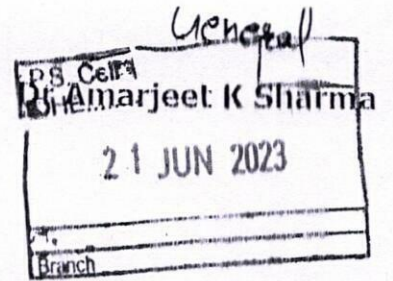 General
P.S. Cell
Dr Amarjeet K Sharma
21 JUN 2023
Branch